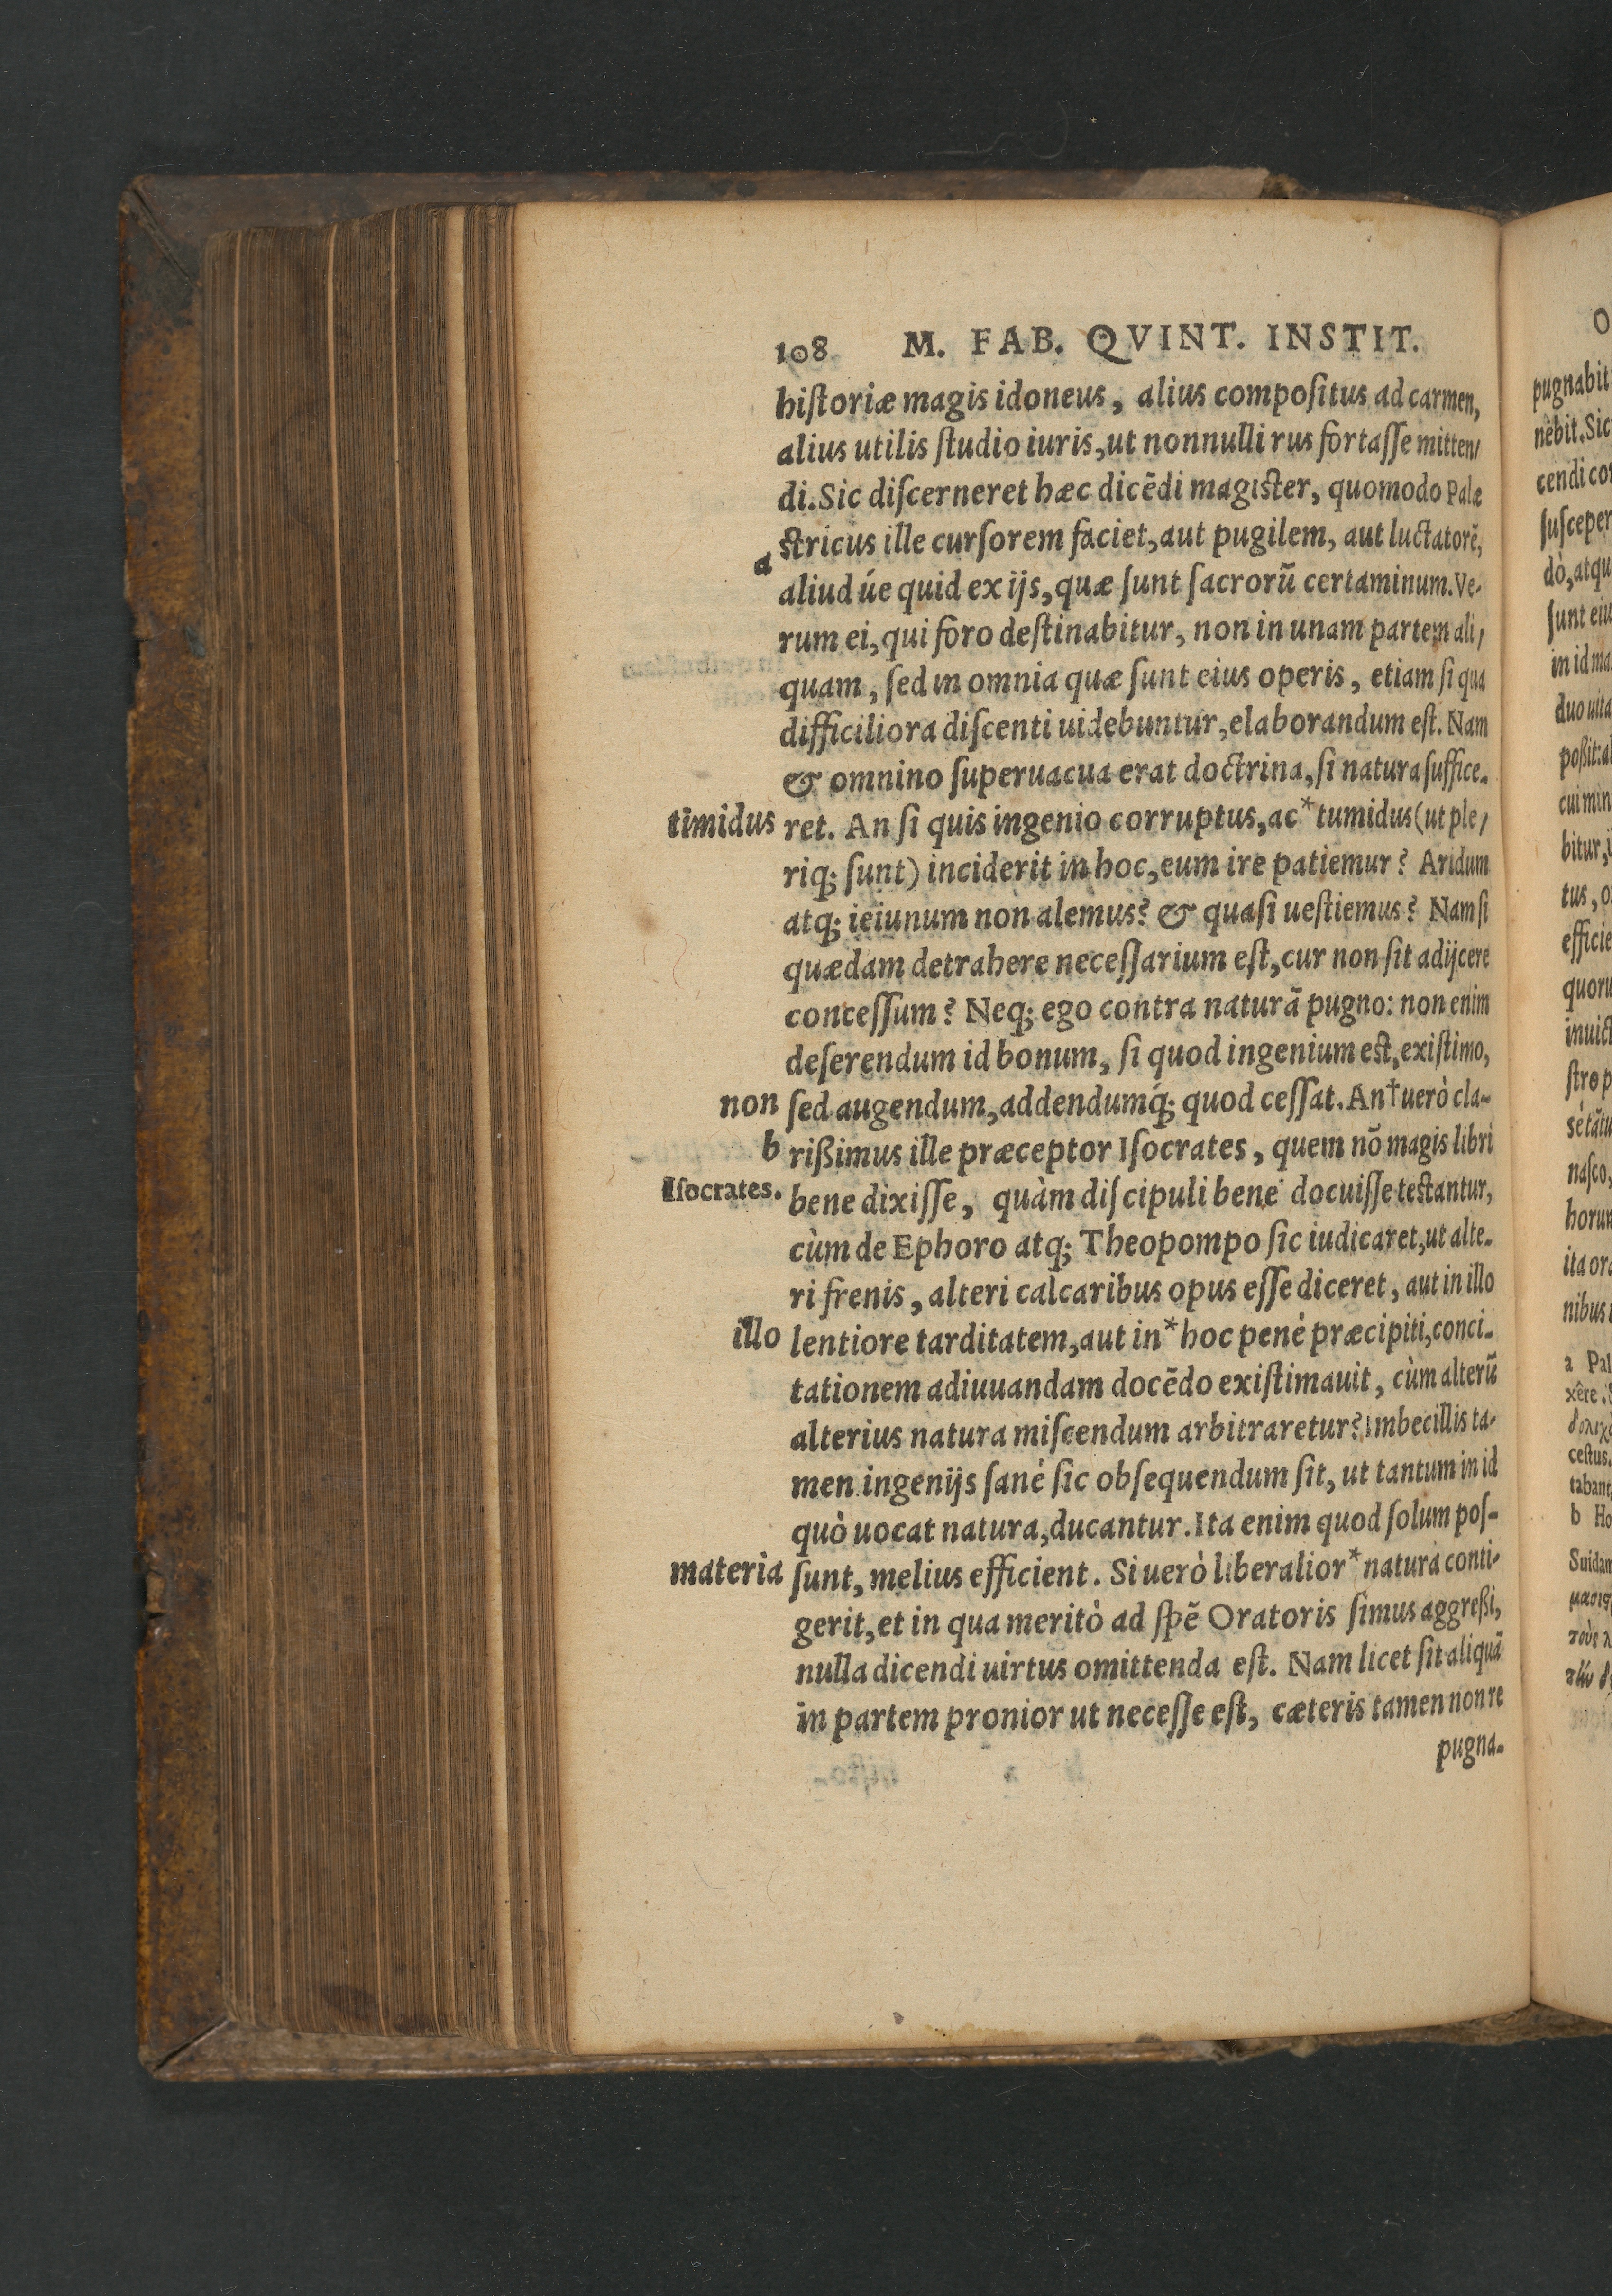 108 M. FAB. QVINT. INSTIT.
hiſtoriæ magis idoneus, alius compoſitus ad carmen,
alius utilis ſtudio iuris, ut nonnulli rus fortaſſe mitten/
di. Sic diſcerneret hæc dicēdi magiſter, quomodo Palæ
a ſtricus ille curſorem faciet, aut pugilem, aut luctatorē,
aliud úe quid ex ijs, quæ ſunt ſacrorū certaminum. Ve-
rum ei, qui foro deſtinabitur, non in unam partem ali/
quam, ſed in omnia quæ ſunt eius operis, etiam ſi qua
difficiliora diſcenti uidebuntur, elaborandum eſt. Nam
& omnino ſuperuacua erat doctrina, ſi natura ſuffice-
timidus ret. An ſi quis ingenio corruptus, ac * tumidus (ut ple/
riq; ſunt) inciderit in hoc, eum ire patiemur? Aridum
atq; ieiunum non alemus? & quaſi ueſtiemus? Nam ſi
quædam detrahere neceſſarium eſt, cur non ſit adijcere
conceſſum? Neq; ego contra naturā pugno: non enim
deſerendum id bonum, ſi quod ingenium eſt, exiſtimo,
non ſed augendum, addendumq́; quod ceſſat. An † uerò cla-
b rißimus ille præceptor Iſocrates, quem nō magis libri
Iſocrates. bene dixiſſe, quàm diſcipuli bene docuiſſe teſtantur,
cùm de Ephoro atq; Theopompo ſic iudicaret, ut alte-
ri frenis, alteri calcaribus opus eſſe diceret, aut in illo
illo lentiore tarditatem, aut in * hoc penè præcipiti, conci-
tationem adiuuandam docēdo exiſtimauit, cùm alterū
alterius natura miſcendum arbitraretur? Imbecillis ta-
men ingenijs ſanè ſic obſequendum ſit, ut tantum in id
quò uocat natura, ducantur. Ita enim quod ſolum poſ-
materia ſunt, melius efficient. Si uerò liberalior * natura conti-
gerit, et in qua meritò ad ſpē Oratoris ſimus aggreßi,
nulla dicendi uirtus omittenda eſt. Nam licet ſit aliquā
in partem pronior ut neceſſe eſt, cæteris tamen non re
pugna-
O
pugnabit
nêbit. Sic
cendi co
ſuſceper
dò, atqu
ſunt eiu
in id ma
duo uita
poßit: al
cui min
bitur, i
tus, o
efficie
quoru
inuict
ſtro p
sé tātu
naſco,
horum
ita ora
nibus
a Pal
xêre.
δολιχο
ceſtus.
tabant
b Ho
Suidam
τοὺς λ